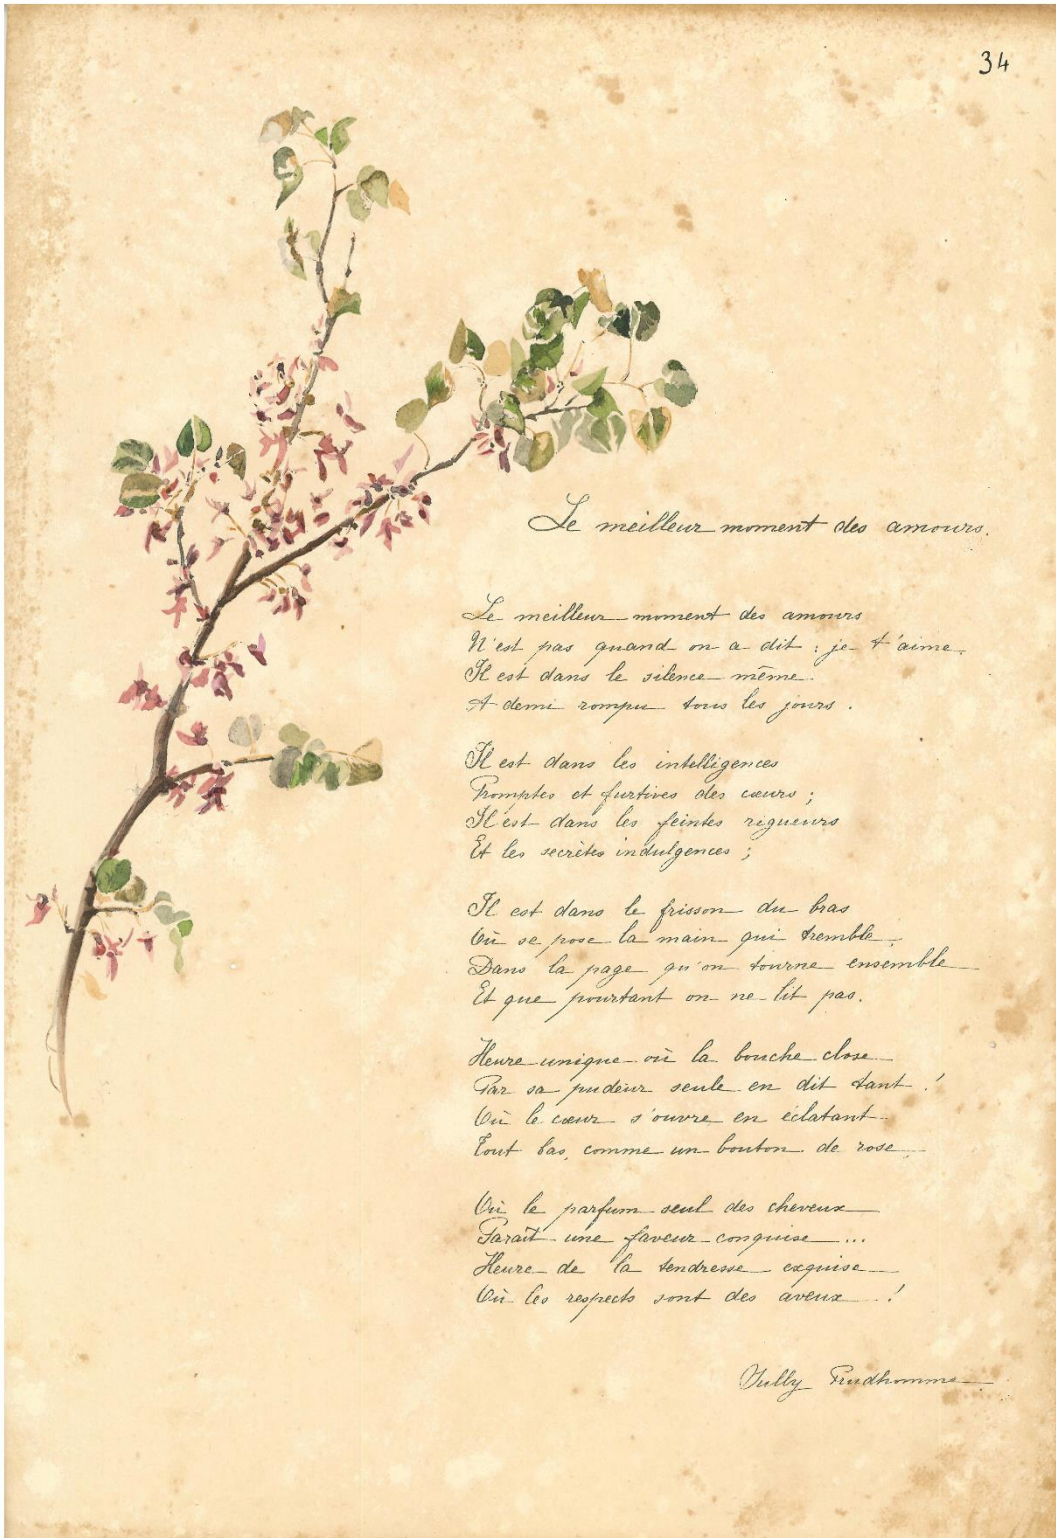 34
Le meilleur moment des amours.
Le meilleur moment des amours
N'est pas quand on a dit : je t'aime.
Il est dans le silence même.
A demi rompu tous les jours.
Il est dans les intelligences
Promptes et furtives des cœurs ;
Il est dans les feintes rigueurs
Et les secrètes indulgences ;
Il est dans le frisson du bras
Où se pose la main qui tremble,
Dans la page qu'on tourne ensemble
Et que pourtant on ne lit pas.
Heure unique où la bouche close
Par sa pudeur seule en dit tant !
Où le cœur s'ouvre en éclatant
Tout bas, comme un bouton de rose,
Où le parfum seul des cheveux
Paraît une faveur conquise ...
Heure de la tendresse exquise
Où les respects sont des aveux !
Sully Prudhomme.